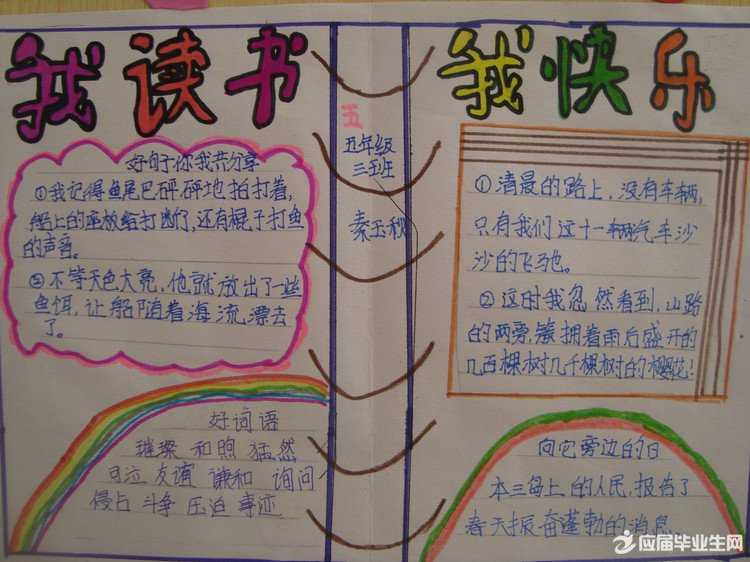 我读书
好句子你我共分享
①我记得鱼尾巴砰砰地拍打着,
船上的座板给打断了,还有棍子打鱼
的声音。
②不等天色大亮,他就放出了一些
鱼饵,让船随着海流漂去
了。
好词语
璀璨 和煦 猛然
友谊 谦和 询问
侵占 斗争 压迫 事迹
五
五年级
三班
秦玉秋
我快乐
①清晨的路上,没有车辆,
只有我们这十一辆汽车沙
沙的飞驰。
②这时我忽然看到,山路
的两旁,簇拥着雨后盛开的
几百棵树几千棵树的樱花!
向它旁边的日
本三岛上的人民,报告了
春天振奋蓬勃的消息
应届毕业生网